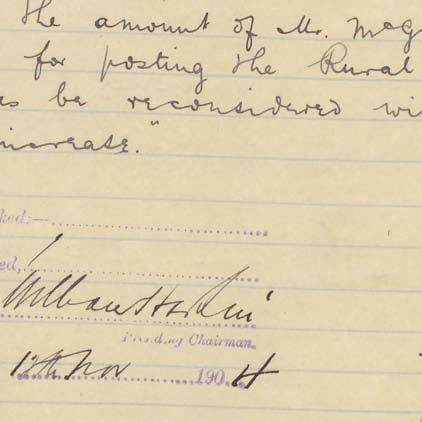 the amount of Mr. McG
for posting the Rural
be reconsidered wi
increase."
ked:—
ed,
Presiding Chairman.
12th Nov 1904